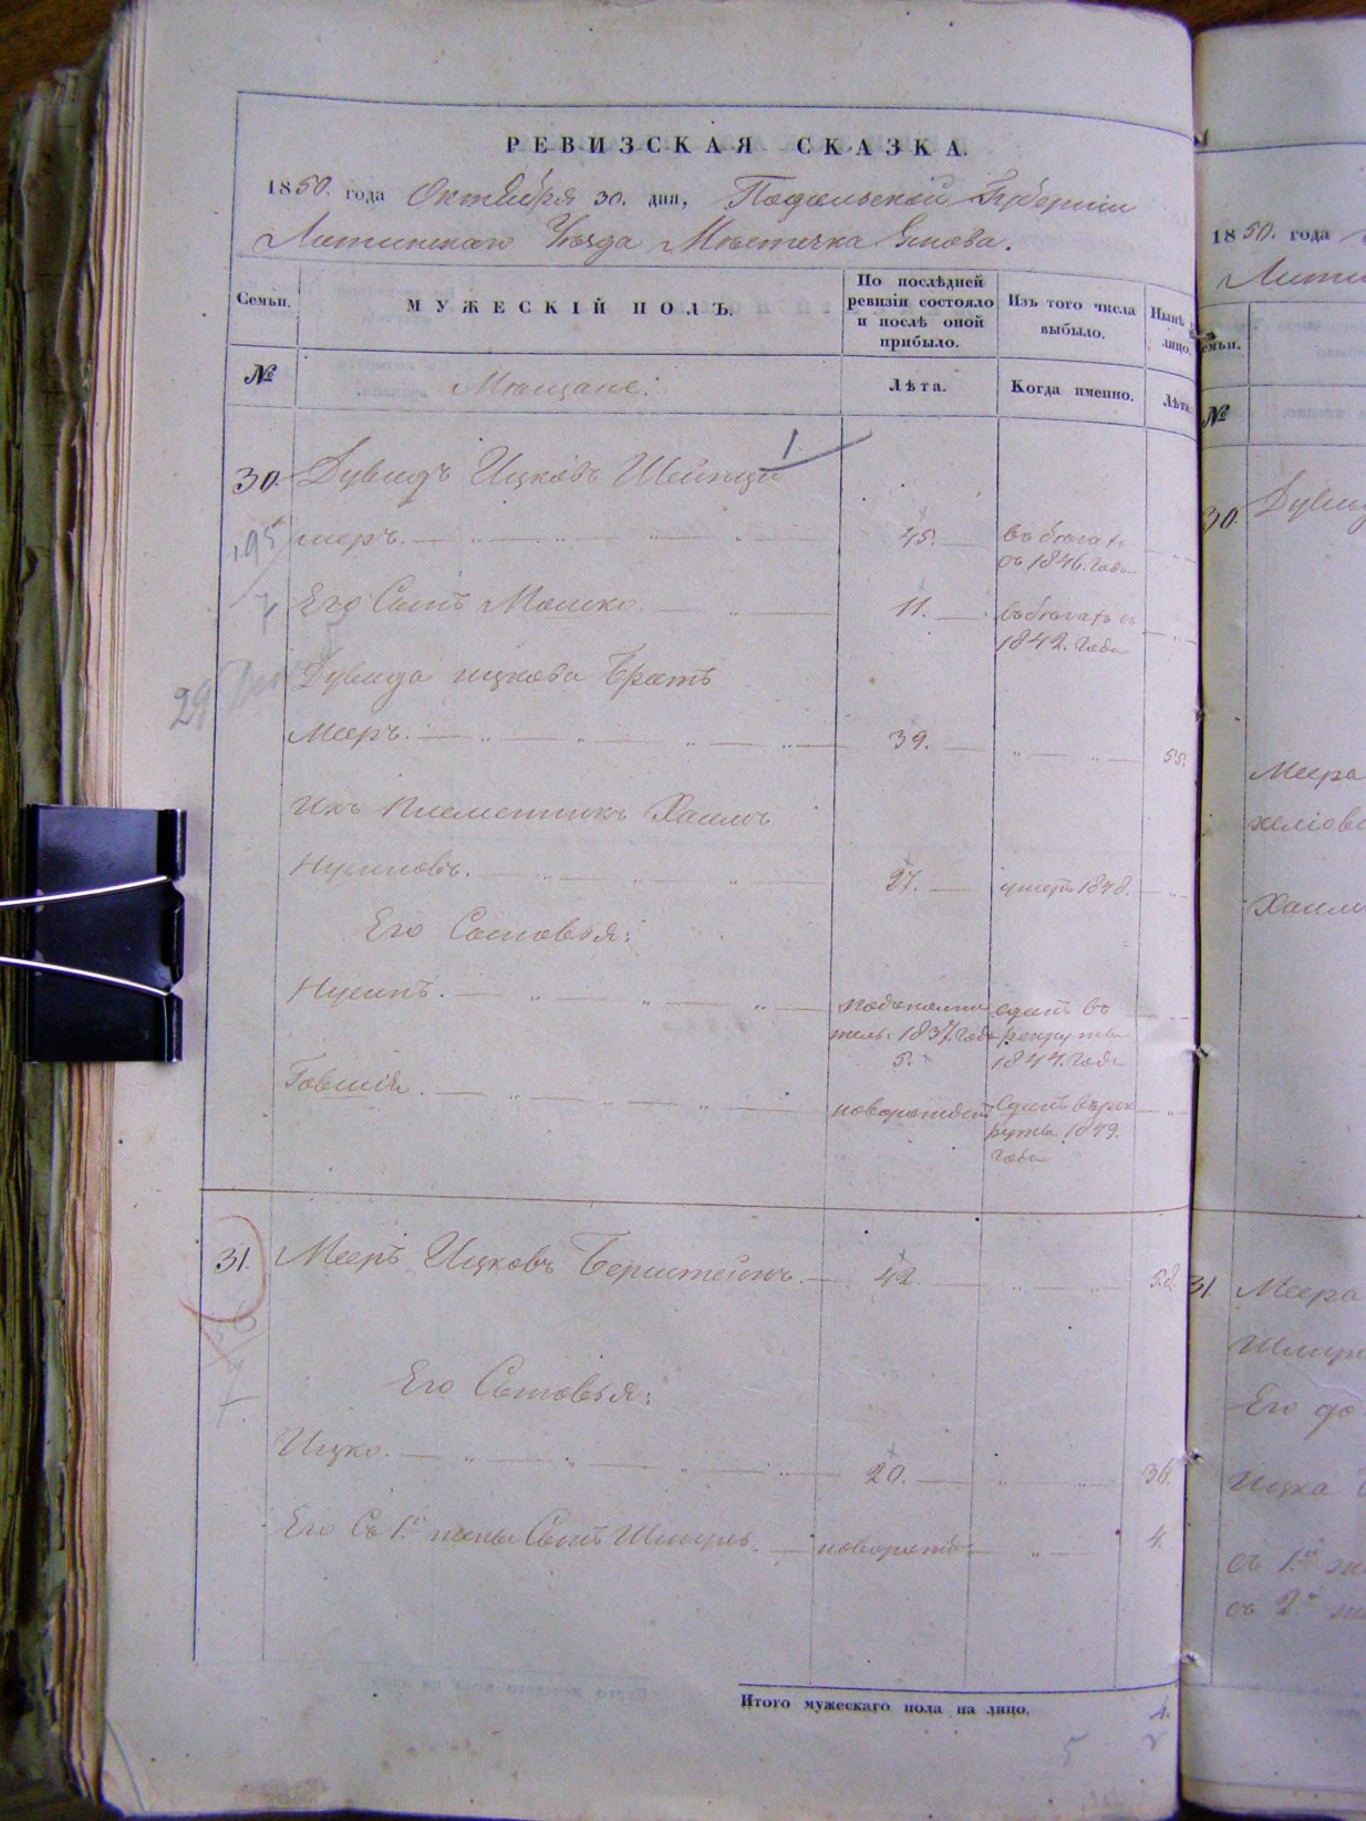 РЕВИЗСКАЯ СКАЗКА.
1850. года Октября 30. дня, Подольской Губерніи
Литинскаго Уѣзда Мѣстечка Янова.
Семьи.
МУЖЕСКІЙ ПОЛЪ.
По послѣдней
ревизіи состояло
и послѣ оной
прибыло.
Изъ того числа
выбыло.
Нынѣ
лицо.
№
Мещане:
Лѣта.
Когда именно.
Лѣта.
1
30. Дувидъ Ицковъ Шейнци
195
меръ. 45. въ бѣгахъ
съ 1846. года
7
Его Сынъ Мошко. 11. въ бѣгахъ съ
1842. года
29
Дувида ицкова Братъ
Мееръ. 39. 55.
Ихъ племенникъ Хаимъ
Нусиновъ. 27. умеръ 1848.
Его Сыновья:
Нусинъ. по дополни сданъ въ
тель: 1837. года рекруты
5. 1844. года
Говшія. новорожден Сданъ въ рек
руты 1849.
года
31. Мееръ Ицковъ Бернштейнъ. 42. 58.
Его Сыновья:
Ицко. 20. 36.
Его Съ 1.й жены Сынъ Шмуль. новорожд 4.
Итого мужескаго пола на лицо. 4.
5
1850. года
Лити
емьи.
№
30. Дувид
Меера
Хаим
31. Меера
Его до
Ицка
съ 1.й
съ 2.й